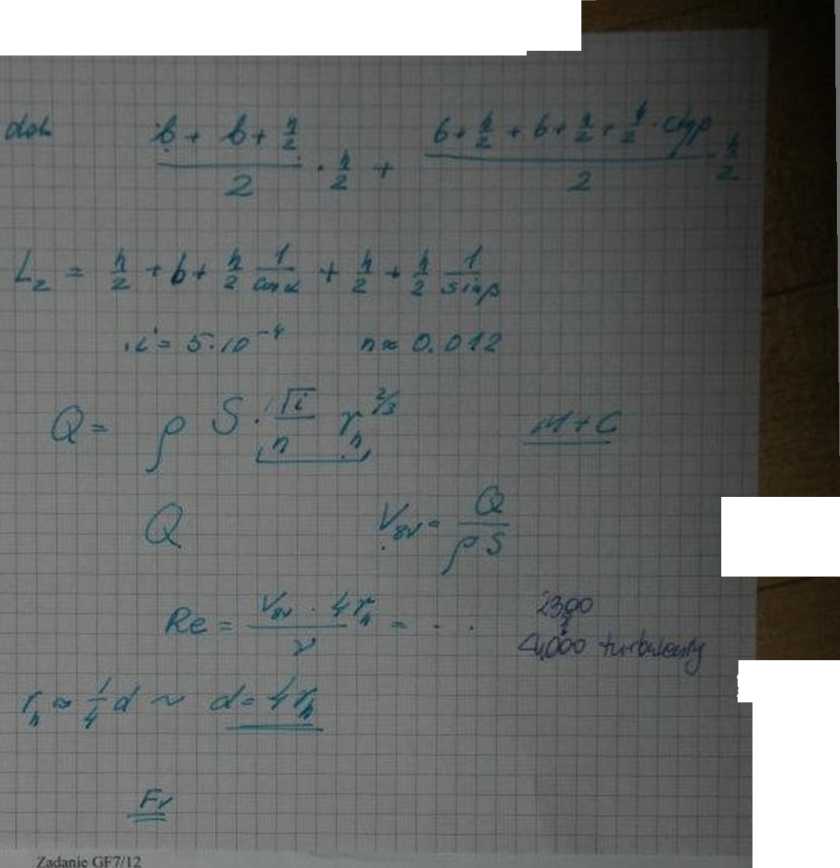 b + b + h/2 / 2 · h/2 + b + h/2 + b + h/2 + h/2 · ctgβ / 2 · h/2
L_z = h/2 + b + h/2 1/cosα + h/2 + h/2 1/sinβ
i = 5·10^-4 n = 0.012
Q = ρ S · √i/n r_h^2/3 M+C
Q V_śr = Q/ρS
Re = V_śr · 4r_h / ν = . . 2300
4000 turbulentny
r_h = 1/4 d ~ d = 4r_h
Fr
Zadanie GF7/12